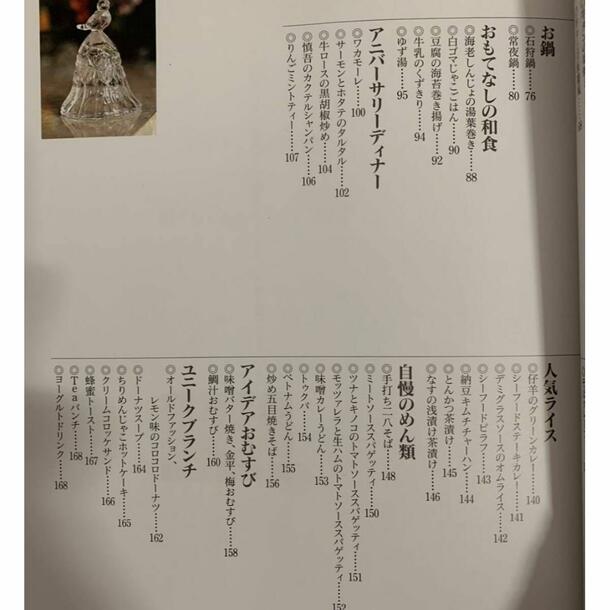 お鍋
◎石狩鍋……76
◎常夜鍋……80
おもてなしの和食
◎海老しんじょの湯葉巻き……88
◎白ゴマじゃこごはん……90
◎豆腐の海苔巻き揚げ……92
◎牛乳のくずきり……94
◎ゆず湯……95
アニバーサリーディナー
◎ワカモーレ……100
◎サーモンとホタテのタルタル……102
◎牛ロースの黒胡椒炒め……104
◎慎吾のカクテルシャンパン……106
◎りんごミントティー……107
人気ライス
◎仔羊のグリーンカレー……140
◎シーフードステーキカレー……141
◎デミグラスソースのオムライス……142
◎シーフードピラフ……143
◎納豆キムチチャーハン……144
◎とんかつ茶漬け……145
◎なすの浅漬け茶漬け……146
自慢のめん類
◎手打ち二八そば……148
◎ミートソーススパゲッティ……150
◎ツナとキノコのトマトソーススパゲッティ……151
◎モッツァレラと生ハムのトマトソーススパゲッティ……152
◎味噌カレーうどん……153
◎トゥクパ……154
◎ベトナムうどん……155
◎炒め五目焼きそば……156
アイデアおむすび
◎味噌バター焼き、金平、梅おむすび……158
◎鯛汁おむすび……160
ユニークブランチ
◎オールドファッション、
レモン味のコロコロドーナツ……162
◎ドーナツスープ……164
◎ちりめんじゃこホットケーキ……165
◎クリームコロッケサンド……166
◎蜂蜜トースト……167
◎Teaパンチ……168
◎ヨーグルトドリンク……168